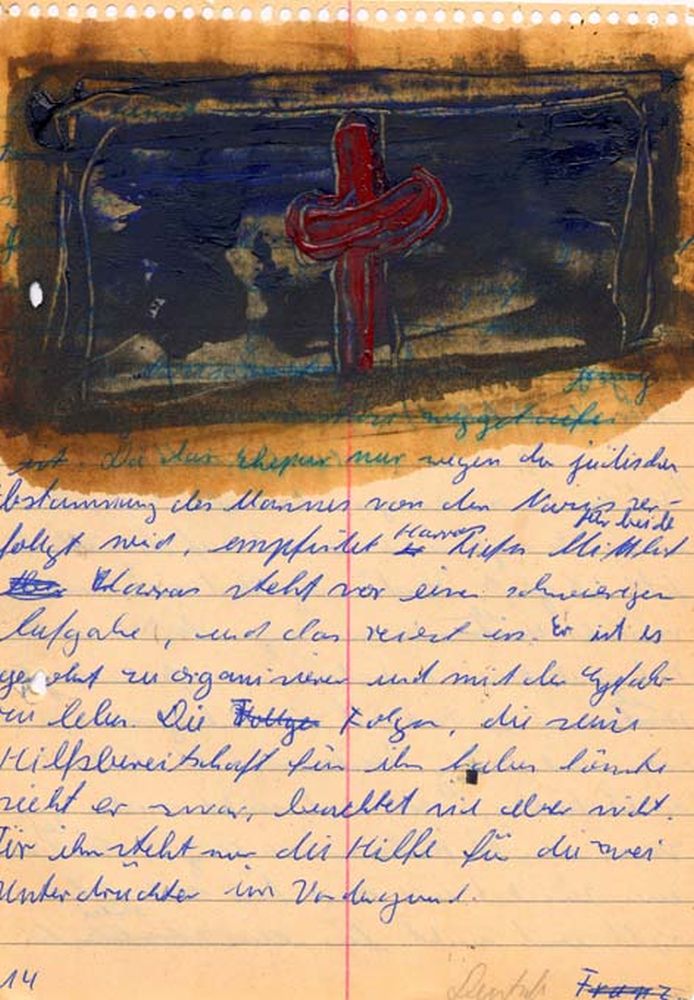 ist. Da das Ehepaar nur wegen der jüdischen
bstammung des Mannes von den Nazis ver-
folgt wird, empfindet Harras tiefes Mitleid
für beide
Harras steht vor einer schwierigen
Aufgabe, und das reizt ihn. Er ist es
gewohnt zu organisieren und mit der Gefahr
zu leben. Die Folgen, die seine
Hilfsbereitschaft für ihn haben könnte
sieht er zwar, beachtet sie aber nicht.
Für ihn steht nur die Hilfe für die zwei
Unterdrückten im Vordergrund.
14
Deutsch Franz